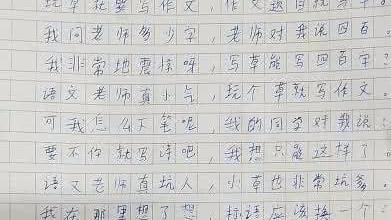 玩草就要写作文，作文题目就写草。
我问老师多少字，老师对我说四百。
我非常地震惊呀，写草能写四百字？
语文老师真小气，玩个草就写作文。
可我怎么下笔呢，我的同学对我说：
要不你就写诗吧，我想只能这样了。
语文老师真坑人，小草也非常坑爹。
我在那里想了想，标语应该换一个